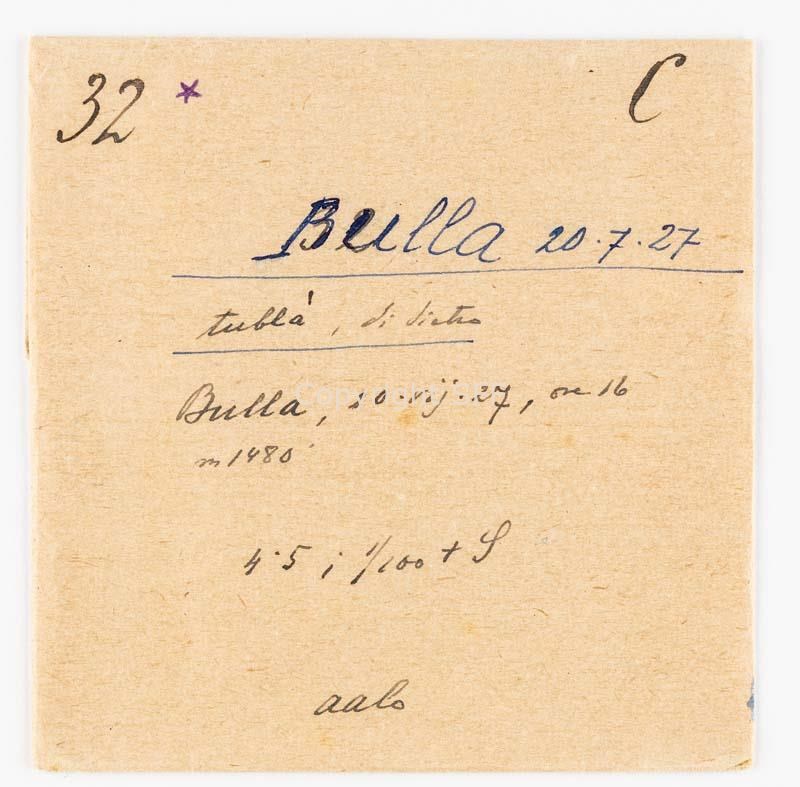 32 * C
Bulla 20.7.27
tublà, di dietro
Bulla, 20.vij.27, ore 16
m 1480
4.5 ; 1/100 + S
aalo